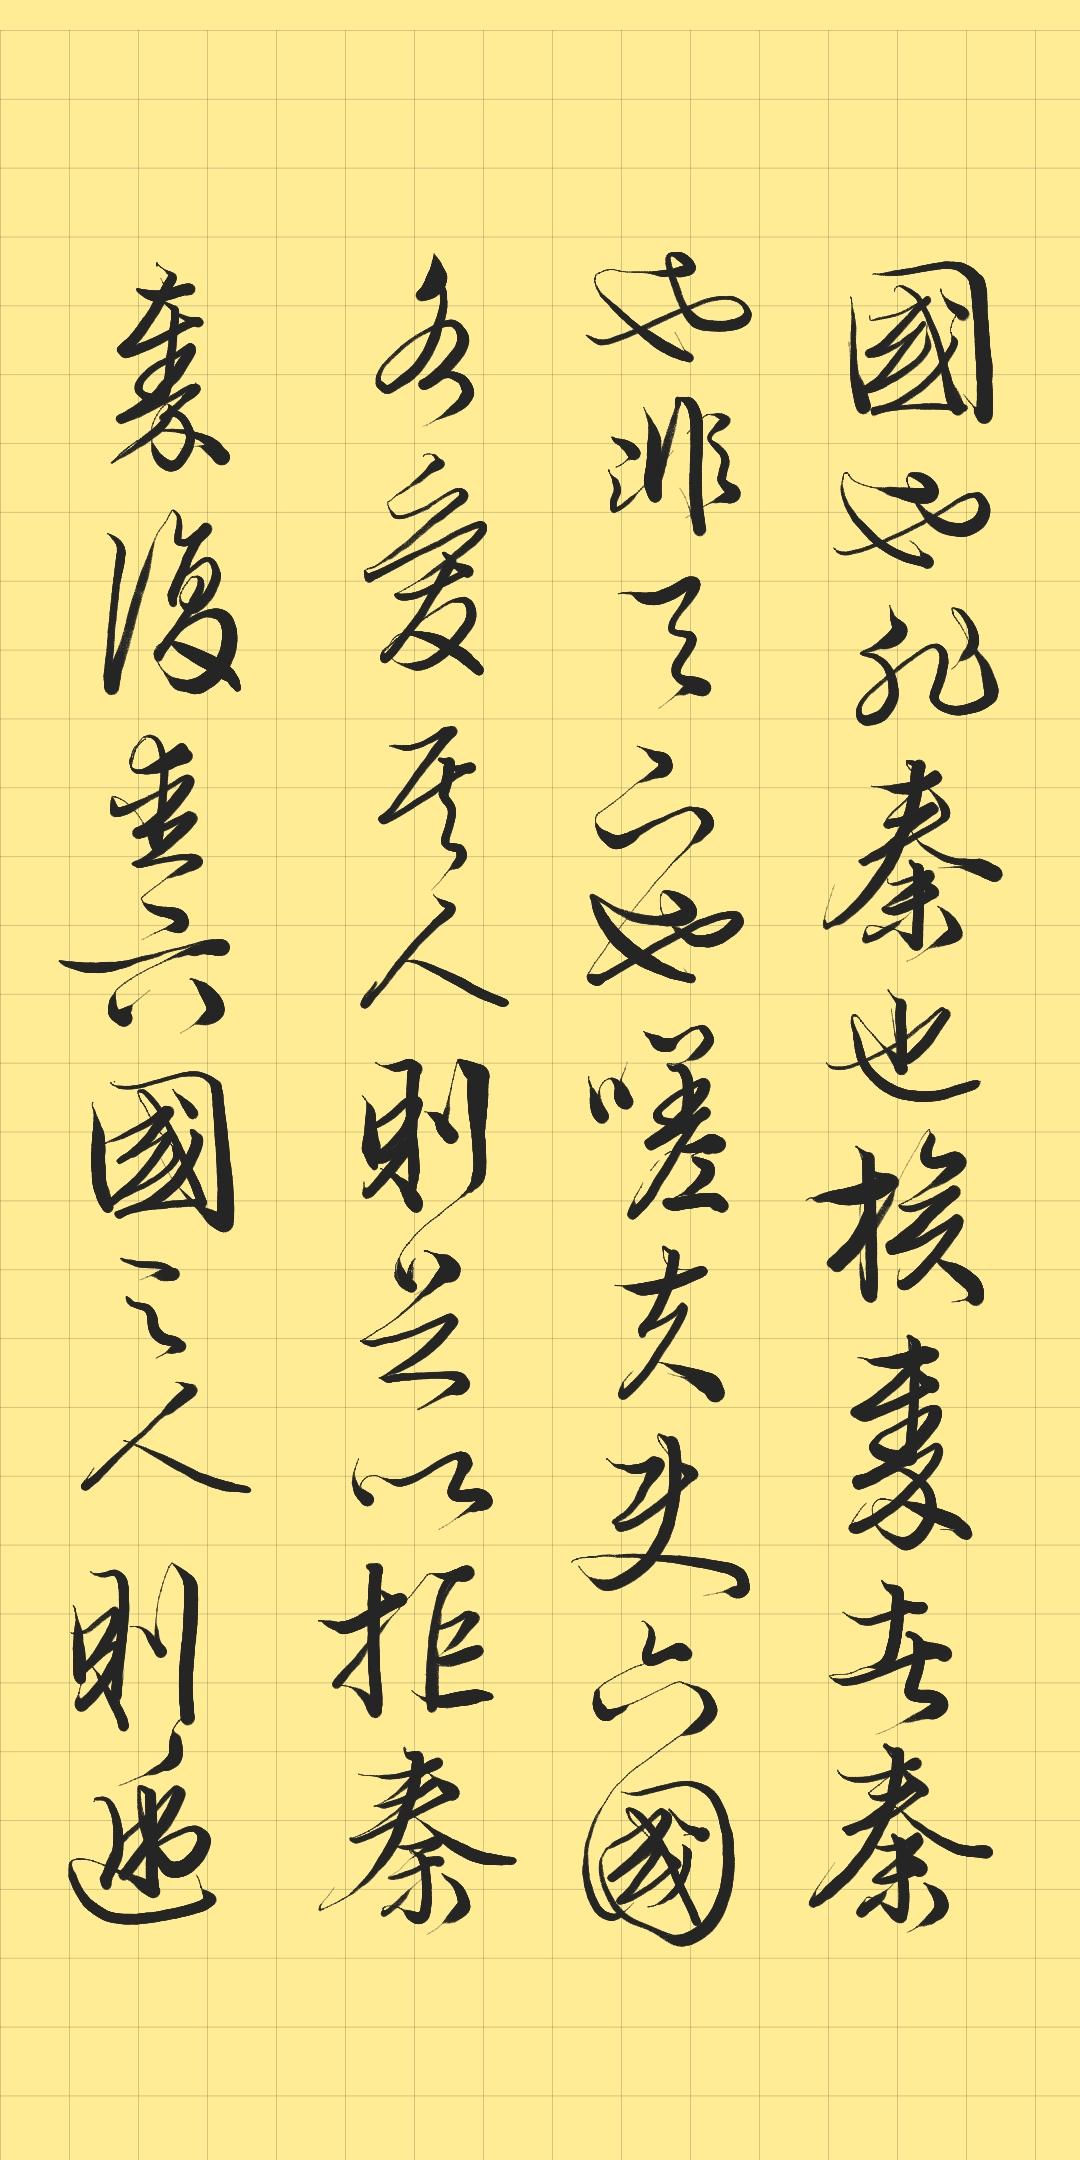 國也非秦也族秦者秦
也非天下也嗟夫使六國
各愛其人則足以拒秦
秦復愛六國之人則遞